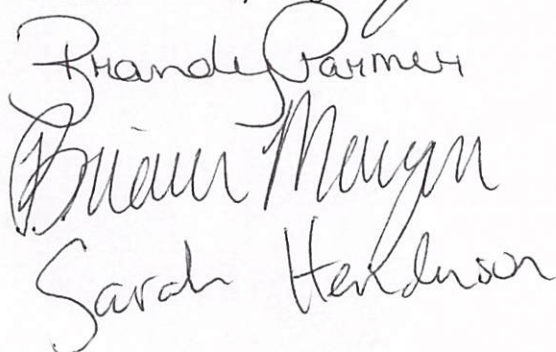 Brandy Parmer
Brian Morgan
Sarah Henderson